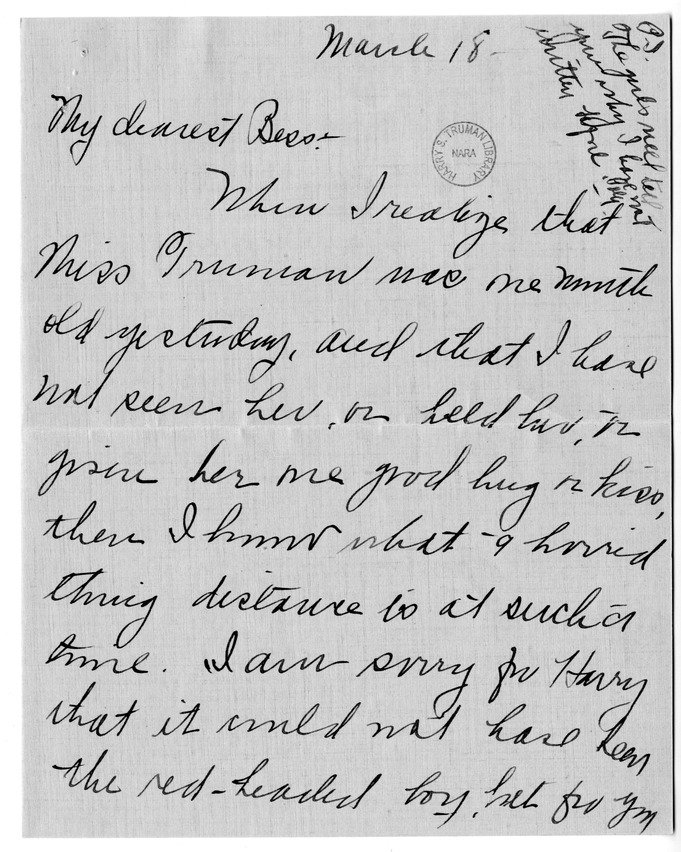 March 18-
P.S.
The girls need tell
you why I have not
written before
My dearest Bess:-
When I realize that
Miss Truman was one month
old yesterday, and that I have
not seen her, or held her, or
given her one good hug or kiss,
then I know what a horrid
thing distance is at such a
time. I am sorry for Harry
that it could not have been
the red-headed boy, but for you
HARRY S. TRUMAN LIBRARY
NARA